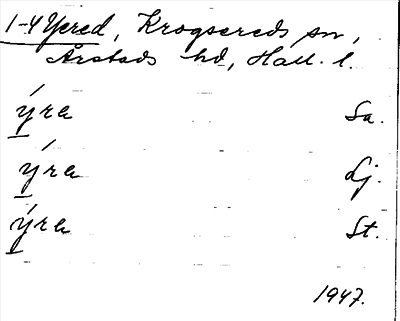 1-4 Yered, Krogsereds sn,
Årstads hd, Hall. l.
ýra Sa.
ýra Lj.
ýra St.
1947.